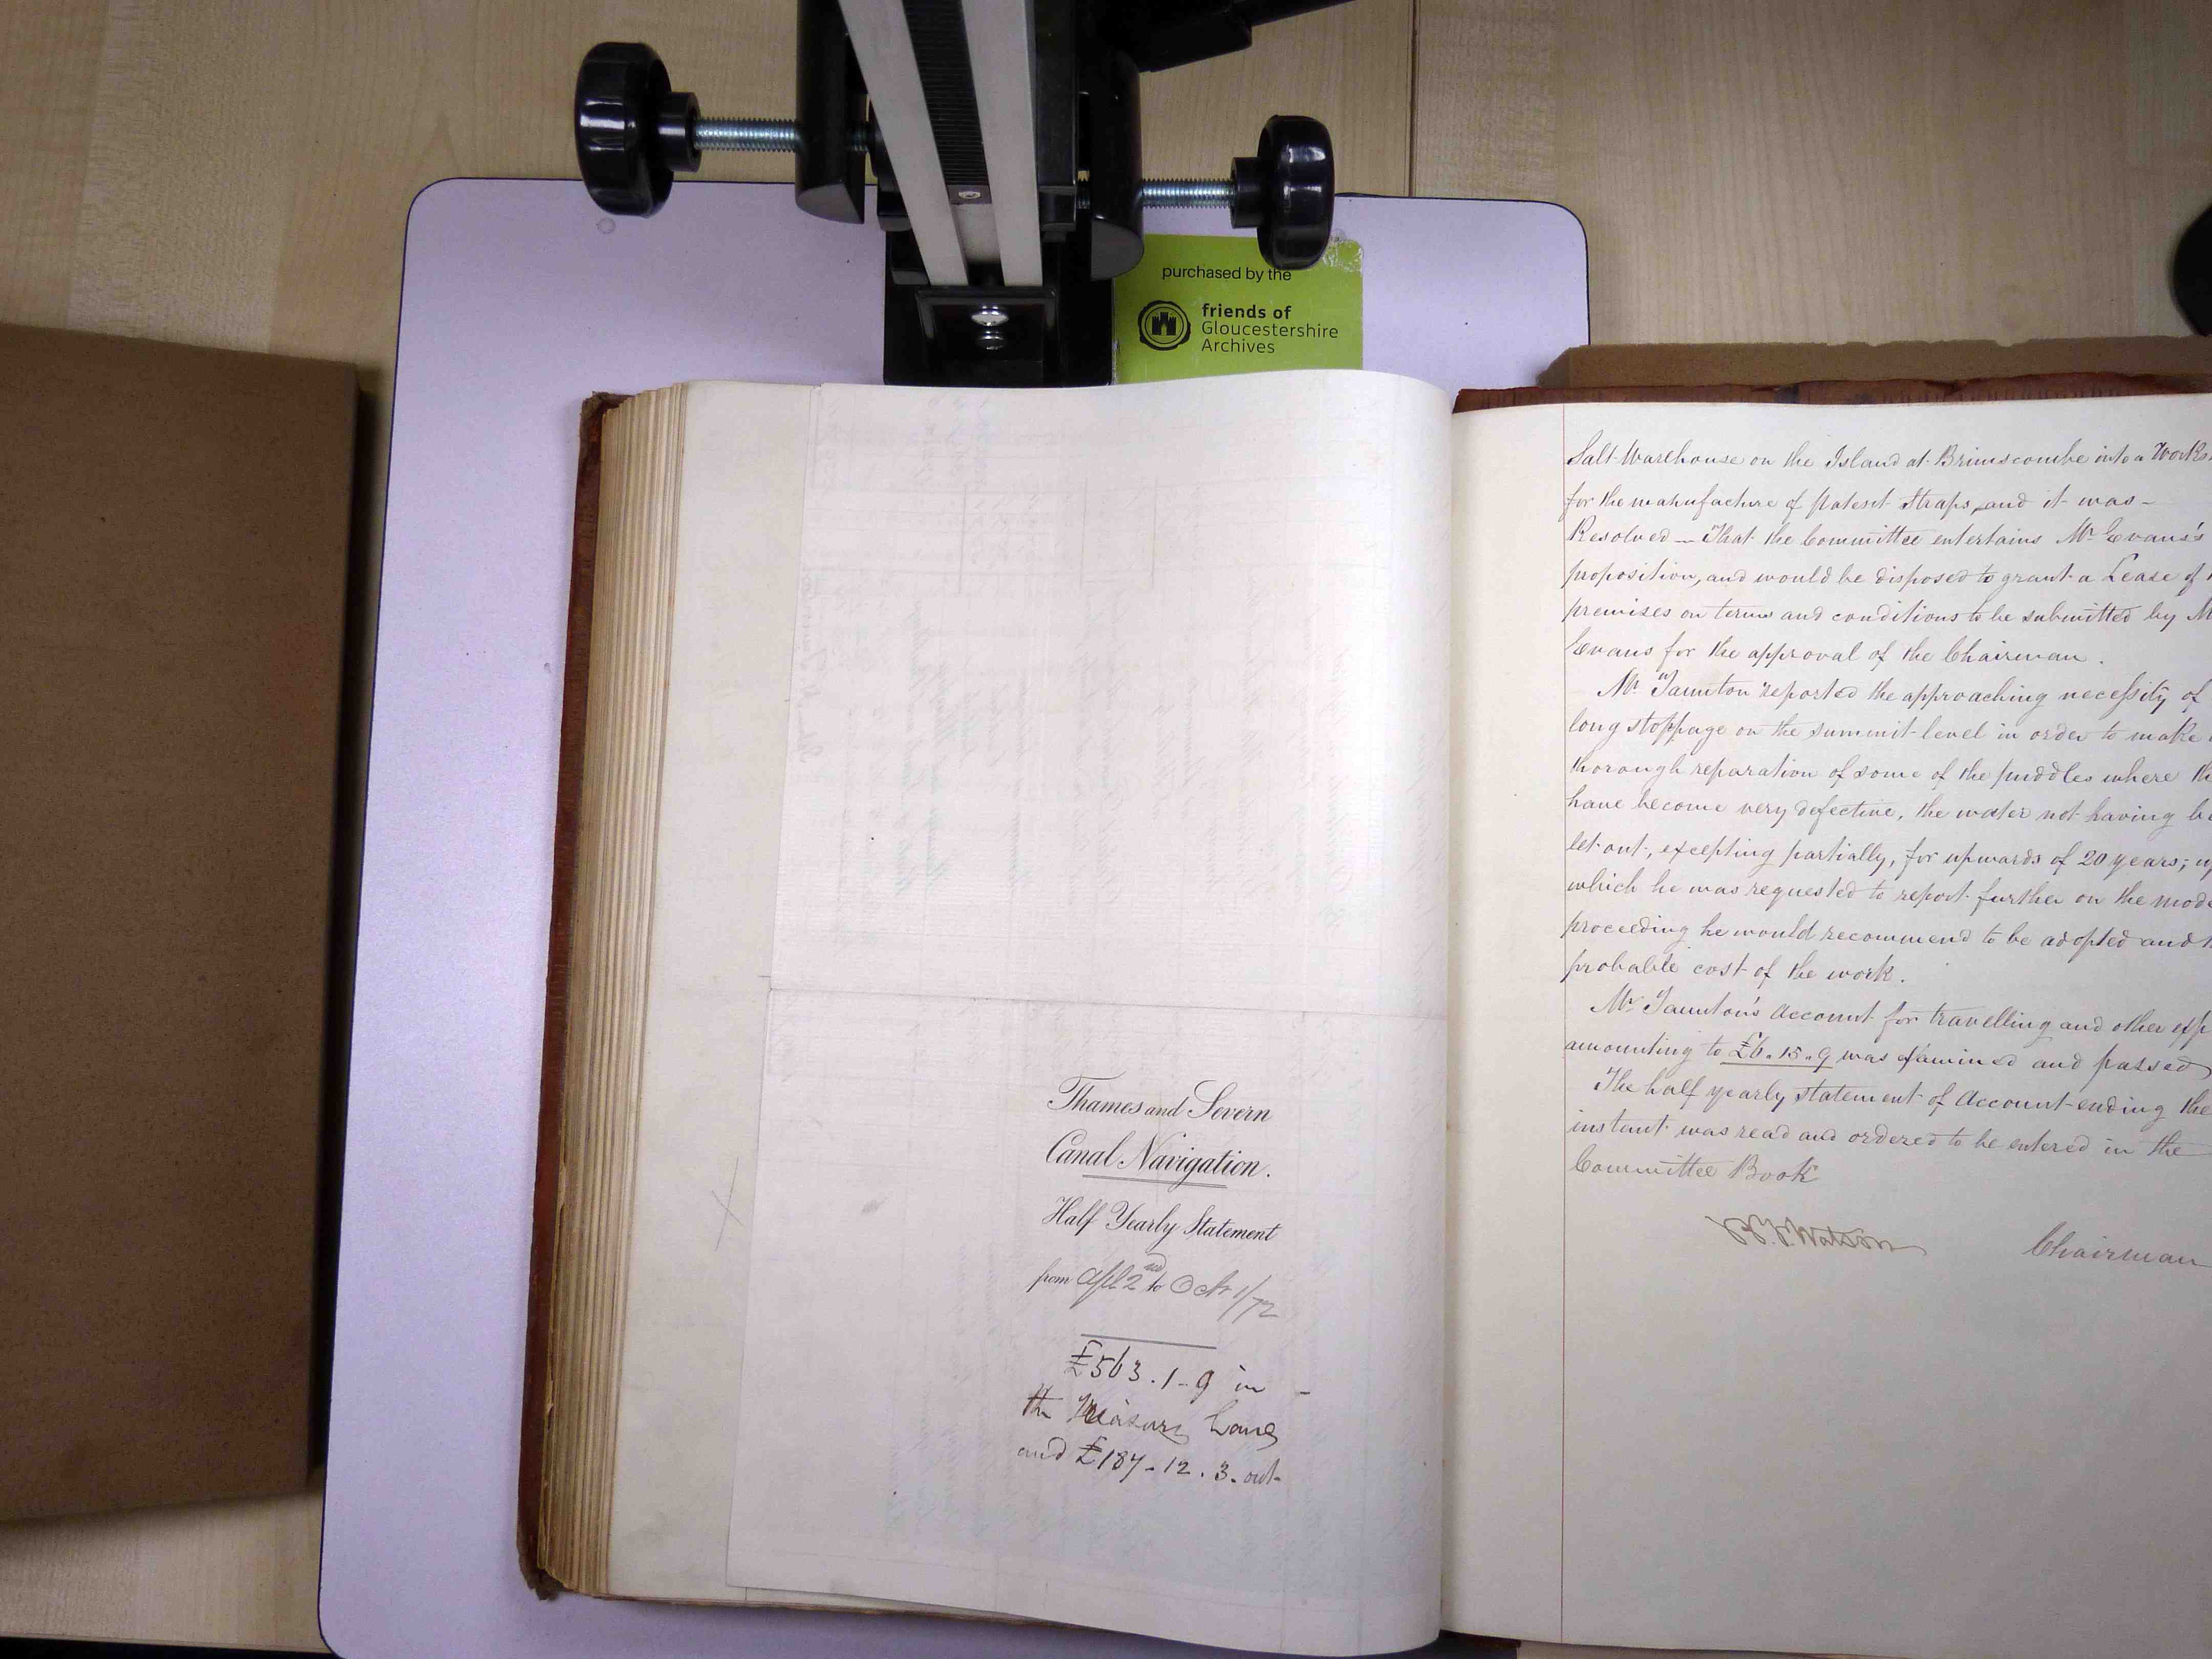 purchased by the
friends of
Gloucestershire
Archives
Thames and Severn
Canal Navigation.
Half Yearly Statement
from Apl 2nd to Octr 1/72
£563.1-9 in -
the Treasurs hands
and £187-12.3. out
Salt Warehouse on the Island at Brimscombe into a Works
for the manufacture of patent straps, and it was -
Resolved - That the Committee entertains Mr Evans's
proposition, and would be disposed to grant a Lease of
premises on terms and conditions to be submitted by M
Evans for the approval of the Chairman.
Mr Taunton reported the approaching necessity of
long stoppage on the summit level in order to make
thorough reparation of some of the puddles where th
have become very defective, the water not having be
let out, excepting partially, for upwards of 20 years; up
which he was requested to report further on the mode
proceeding he would recommend to be adopted and
probable cost of the work.
Mr Taunton's Account for travelling and other exp
amounting to £6.15.9 was examined and passed
The half yearly statement of Account ending the
instant was read and ordered to be entered in the
Committee Book
Watson Chairman